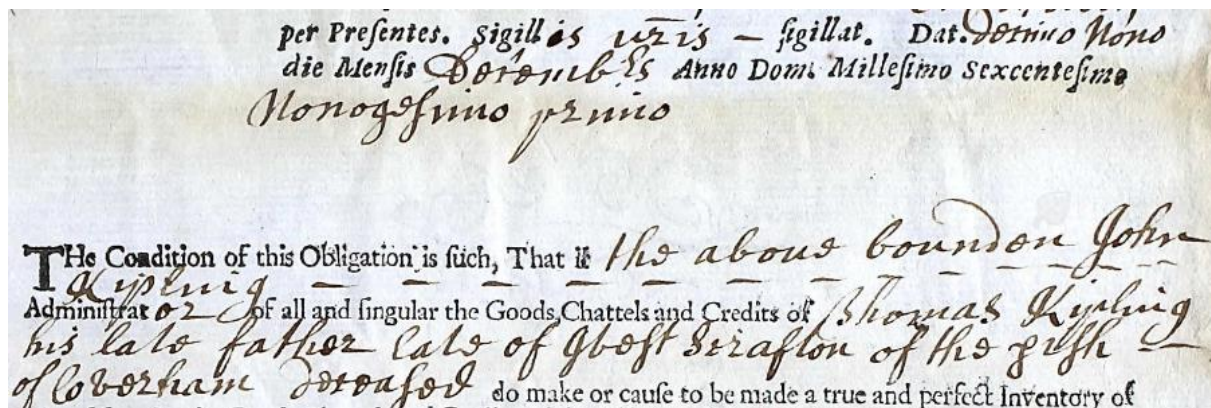 per Presentes. Sigillis vris – sigillat. Dat. decimo Nono
die Mensis Decembris Anno Dom. Millesimo Sexcentesimo
Nonogesimo primo
THe Condition of this Obligation is such, That if the above bounden John
Kipling – – – – – – – – –
Administrator of all and singular the Goods, Chattels and Credits of Thomas Kipling
his late father late of West Scrafton of the prsh –
of Coverham deceased do make or cause to be made a true and perfect Inventory of